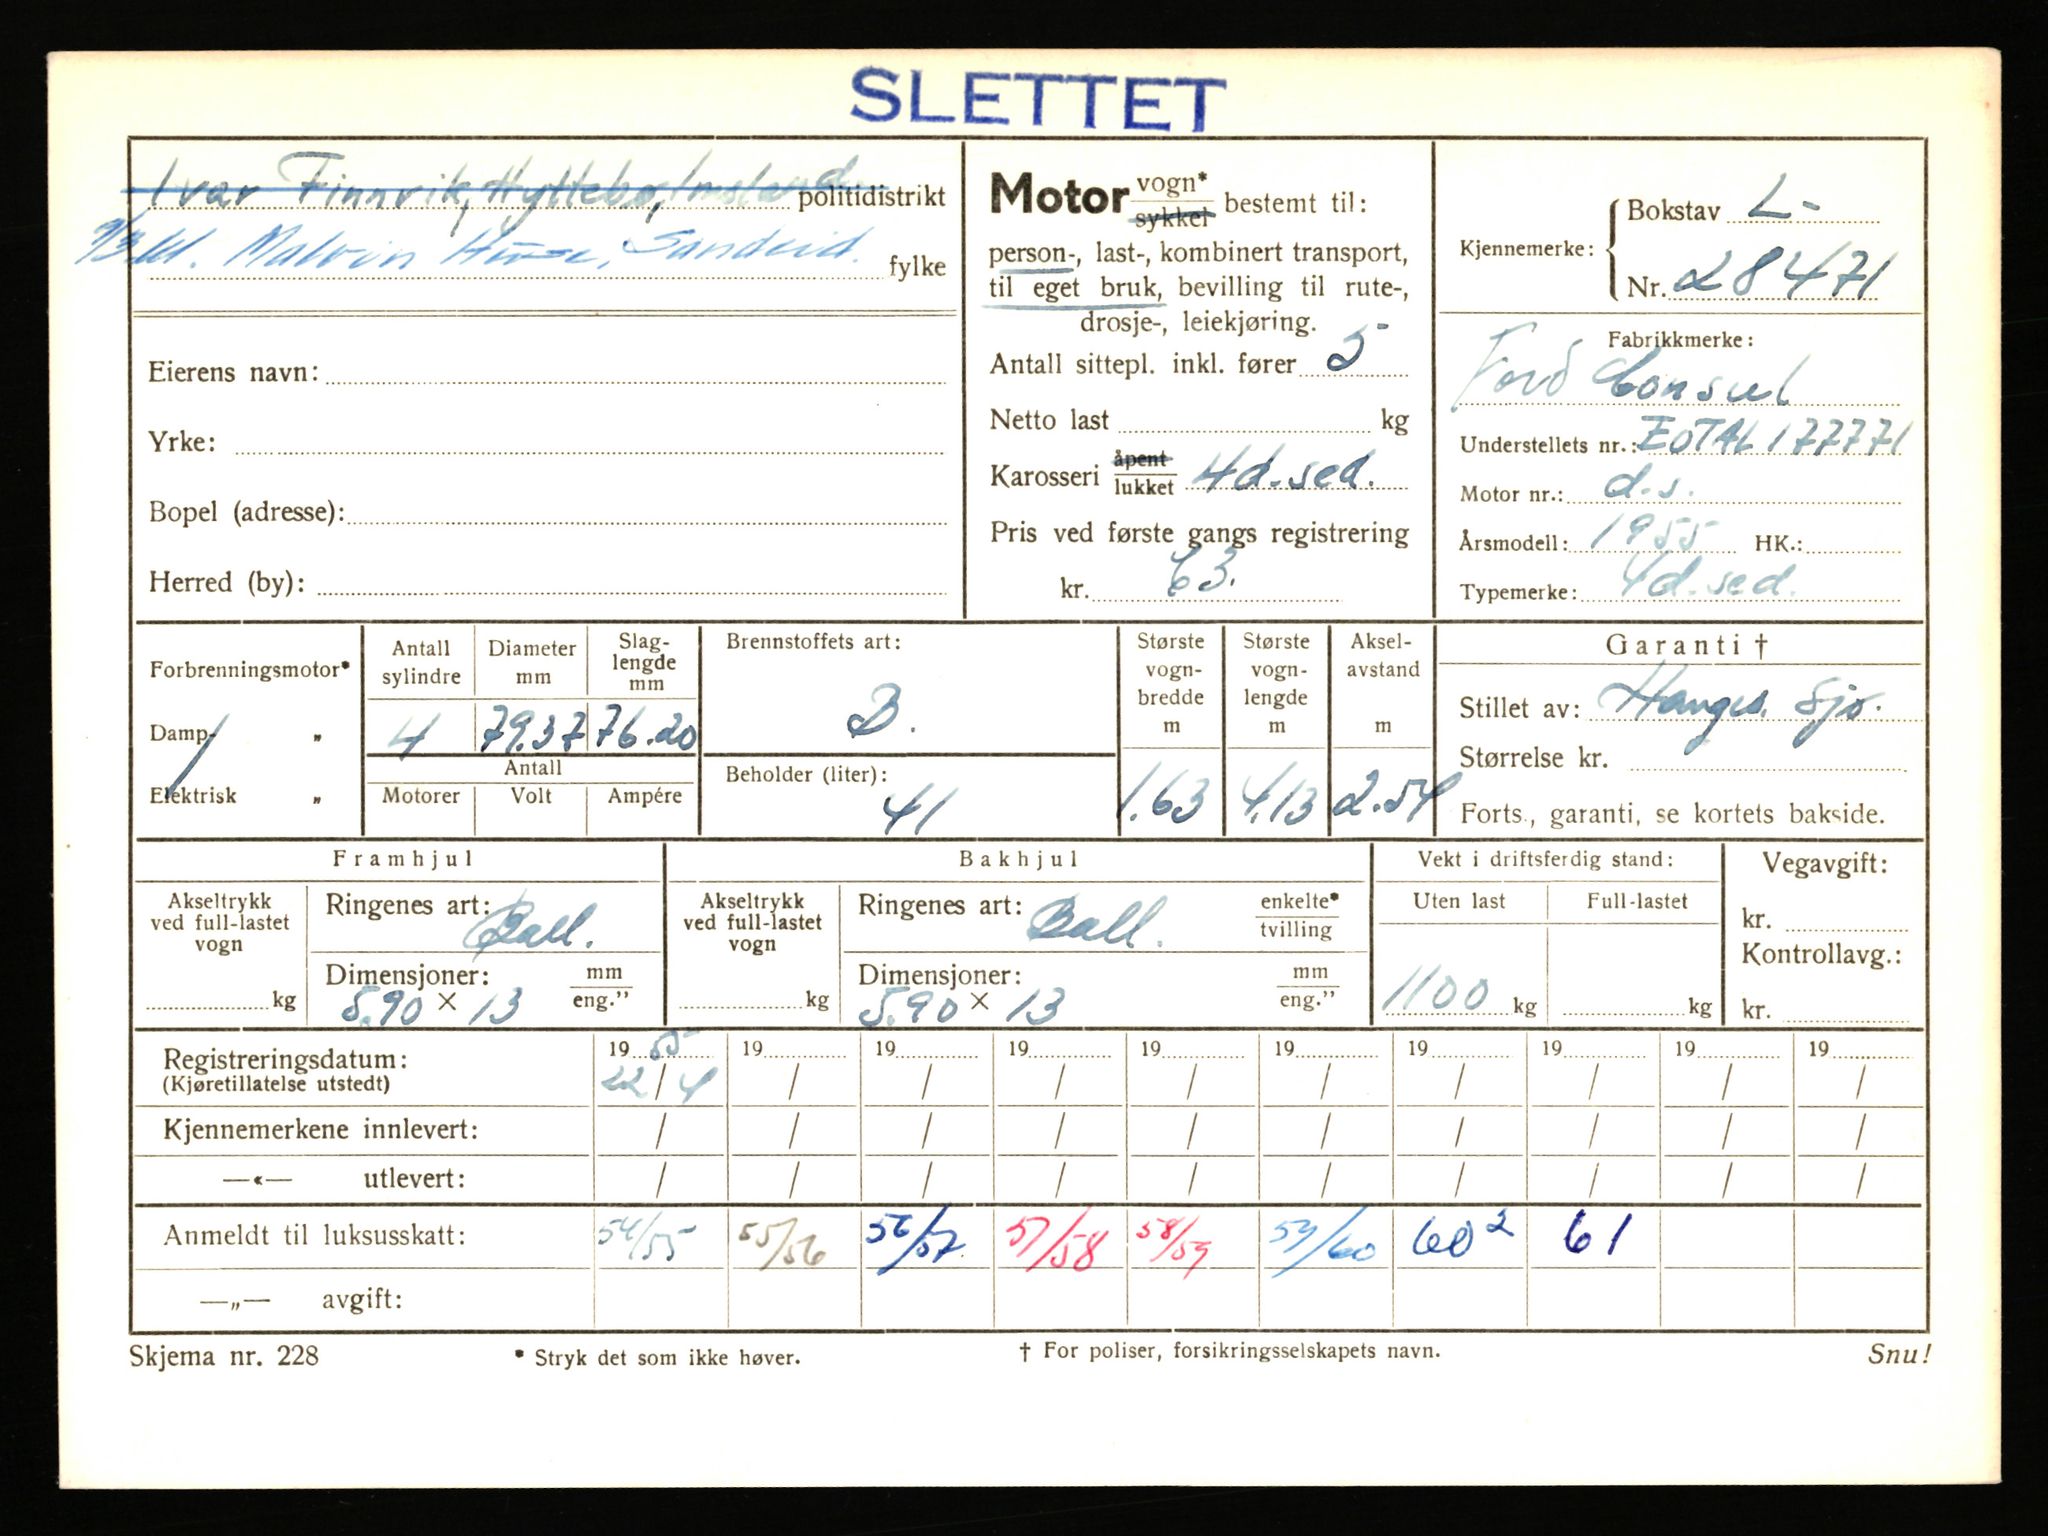 SLETTET
Ivar Finnvik, Hyttebø, Imsland politidistrikt
Malvin Sandeid. fylke
Eierens navn:
Yrke:
Bopel (adresse):
Herred (by):
Motor vogn* sykkel bestemt til:
person-, last-, kombinert transport,
til eget bruk, bevilling til rute-,
drosje-, leiekjøring.
Antall sittepl. inkl. fører 5
Netto last kg
Karosseri åpent lukket 4d-sed.
Pris ved første gangs registrering
kr. 63.
Kjennemerke: Bokstav L-
Nr. 28471
Fabrikkmerke:
Ford Consul
Understellets nr.: EOTAL 177771
Motor nr.: d.s.
Årsmodell: 1955 HK.:
Typemerke: 4d.sed.
Forbrenningsmotor*
Damp- „
Elektrisk „
Antall sylindre
Diameter mm
Slag-
lengde
mm
4 79.37 76.20
Antall
Motorer Volt Ampére
Brennstoffets art:
B.
Beholder (liter):
41
Største
vogn-
bredde
m
1.63
Største
vogn-
lengde
m
4.13
Aksel-
avstand
m
2.54
Garanti †
Stillet av: Hauges. Sjø.
Størrelse kr.
Forts., garanti, se kortets bakside.
Framhjul
Akseltrykk
ved full-lastet
vogn
kg
Ringenes art: Ball.
Dimensjoner: mm eng.”
5.90 × 13
Bakhjul
Akseltrykk
ved full-lastet
vogn
kg
Ringenes art: Ball. enkelte* tvilling
Dimensjoner: mm eng.”
5.90 × 13
Vekt i driftsferdig stand:
Uten last Full-lastet
1100 kg kg
Vegavgift:
kr.
Kontrollavg.:
kr.
Registreringsdatum: 19 55 19 19 19 19 19 19 19 19 19
(Kjøretillatelse utstedt) 22/4 / / / / / / / / /
Kjennemerkene innlevert: / / / / / / / / / /
—«— utlevert: / / / / / / / / / /
Anmeldt til luksusskatt: 54/55 55/56 56/57. 57/58 58/59 59/60 60² 61
—„— avgift:
Skjema nr. 228 * Stryk det som ikke høver. † For poliser, forsikringsselskapets navn. Snu!